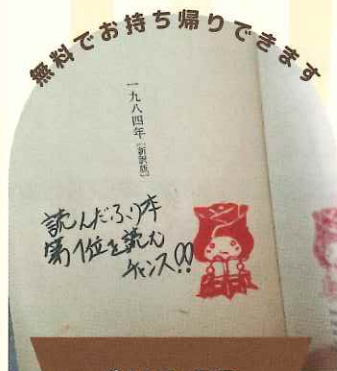 無料でお持ち帰りできます
一九八四年[新訳版]
読んだふり本
第1位を読む
チャンス!!